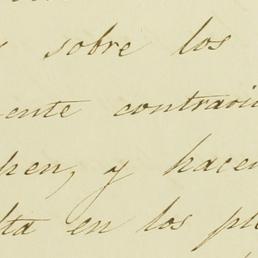 sobre los
ente contrario
pen, y hacen
lta en los pl